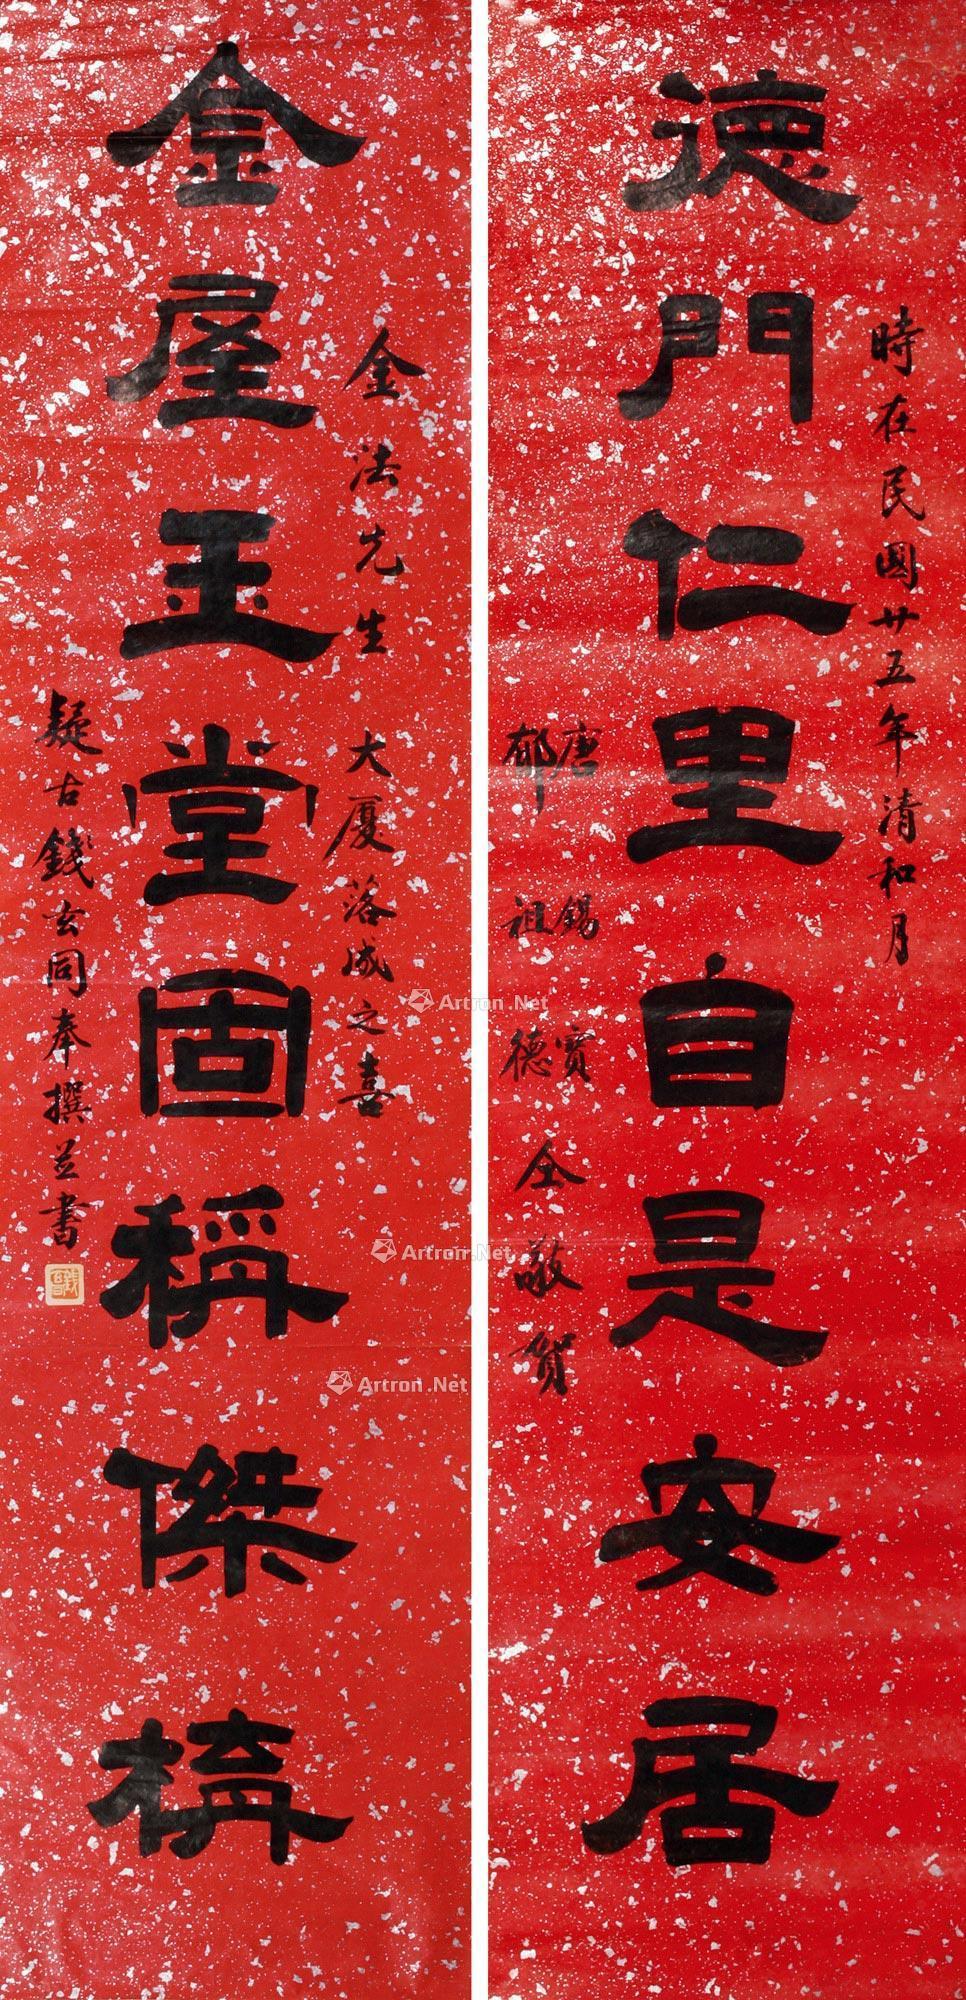 時在民國廿五年清和月
德門仁里自是安居
唐錫寶
郁祖德
仝敬賀
金法先生
大厦落成之喜
金屋玉堂固稱傑構
疑古錢玄同奉撰並書
Artron.Net
Artron.Net
Artron.Net